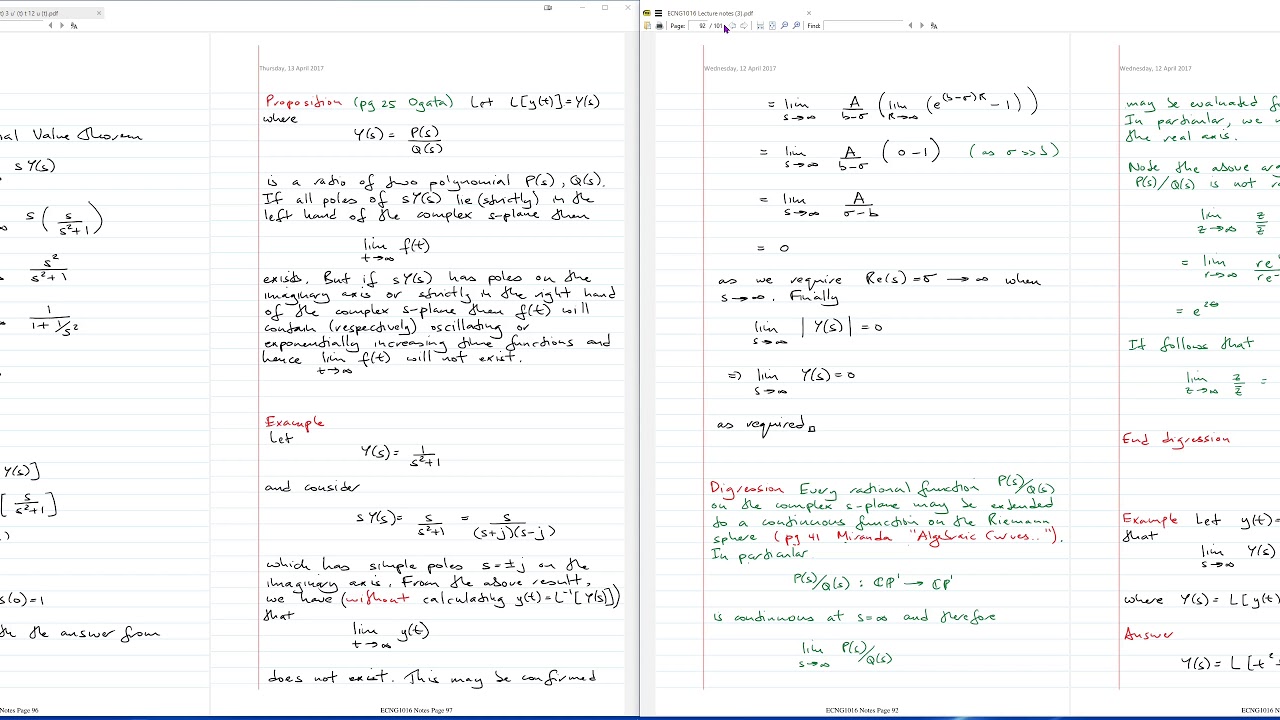 t) 3 u' (t) t 12 u (t).pdf
ECNG1016 Lecture notes (3).pdf
Page: 92 / 101
Find:
nal Value Theorem
s Y(s)
s ( s / s²+1 )
s² / s²+1
1 / 1 + 1/s²
Y(s)]
[ s / s²+1 ]
s(0)=1
th the answer from
ECNG1016 Notes Page 96
Thursday, 13 April 2017
Proposition (pg 25 Ogata) Let L[y(t)] = Y(s)
where
Y(s) = P(s) / Q(s)
is a ratio of two polynomial P(s), Q(s).
If all poles of sY(s) lie (strictly) in the
left hand of the complex s-plane then
lim f(t)
t→∞
exists. But if sY(s) has poles on the
imaginary axis or strictly in the right hand
of the complex s-plane then f(t) will
contain (respectively) oscillating or
exponentially increasing time functions and
hence lim f(t) will not exist.
t→∞
Example
Let
Y(s) = 1 / s²+1
and consider
sY(s) = s / s²+1 = s / (s+j)(s-j)
which has simple poles s=±j on the
imaginary axis. From the above result,
we have (without calculating y(t) = L⁻¹[Y(s)])
that
lim y(t)
t→∞
does not exist. This may be confirmed
ECNG1016 Notes Page 97
Wednesday, 12 April 2017
= lim A / b-σ ( lim (e^(b-σ)R - 1) )
s→∞ R→∞
= lim A / b-σ ( 0 - 1 ) (as σ >> b)
s→∞
= lim A / σ-b
s→∞
= 0
as we require Re(s) = σ → ∞ when
s→∞. Finally
lim | Y(s) | = 0
s→∞
⇒ lim Y(s) = 0
s→∞
as required □
Digression Every rational function P(s)/Q(s)
on the complex s-plane may be extended
to a continuous function on the Riemann
sphere (pg 41 Miranda "Algebraic Curves..").
In particular
P(s)/Q(s) : ℂP¹ → ℂP¹
is continuous at s=∞ and therefore
lim P(s)/Q(s)
s→∞
ECNG1016 Notes Page 92
Wednesday, 12 April 2017
may be evaluated f
In particular, we
the real axis.
Note the above ar
P(s)/Q(s) is not r
lim z / z̄
z→∞
= lim re
r→∞ re⁻
= e^2iθ
It follows that
lim z / z̄ =
z→∞
End digression
Example Let y(t) =
that
lim Y(s)
s→∞
where Y(s) = L[y(t)
Answer
Y(s) = L[t²